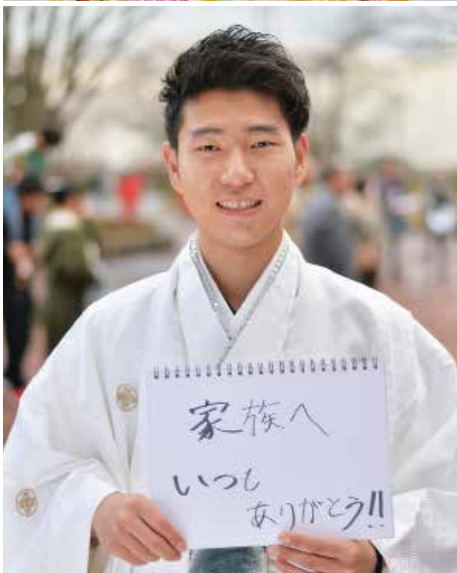 家族へ
いつも
ありがとう!!